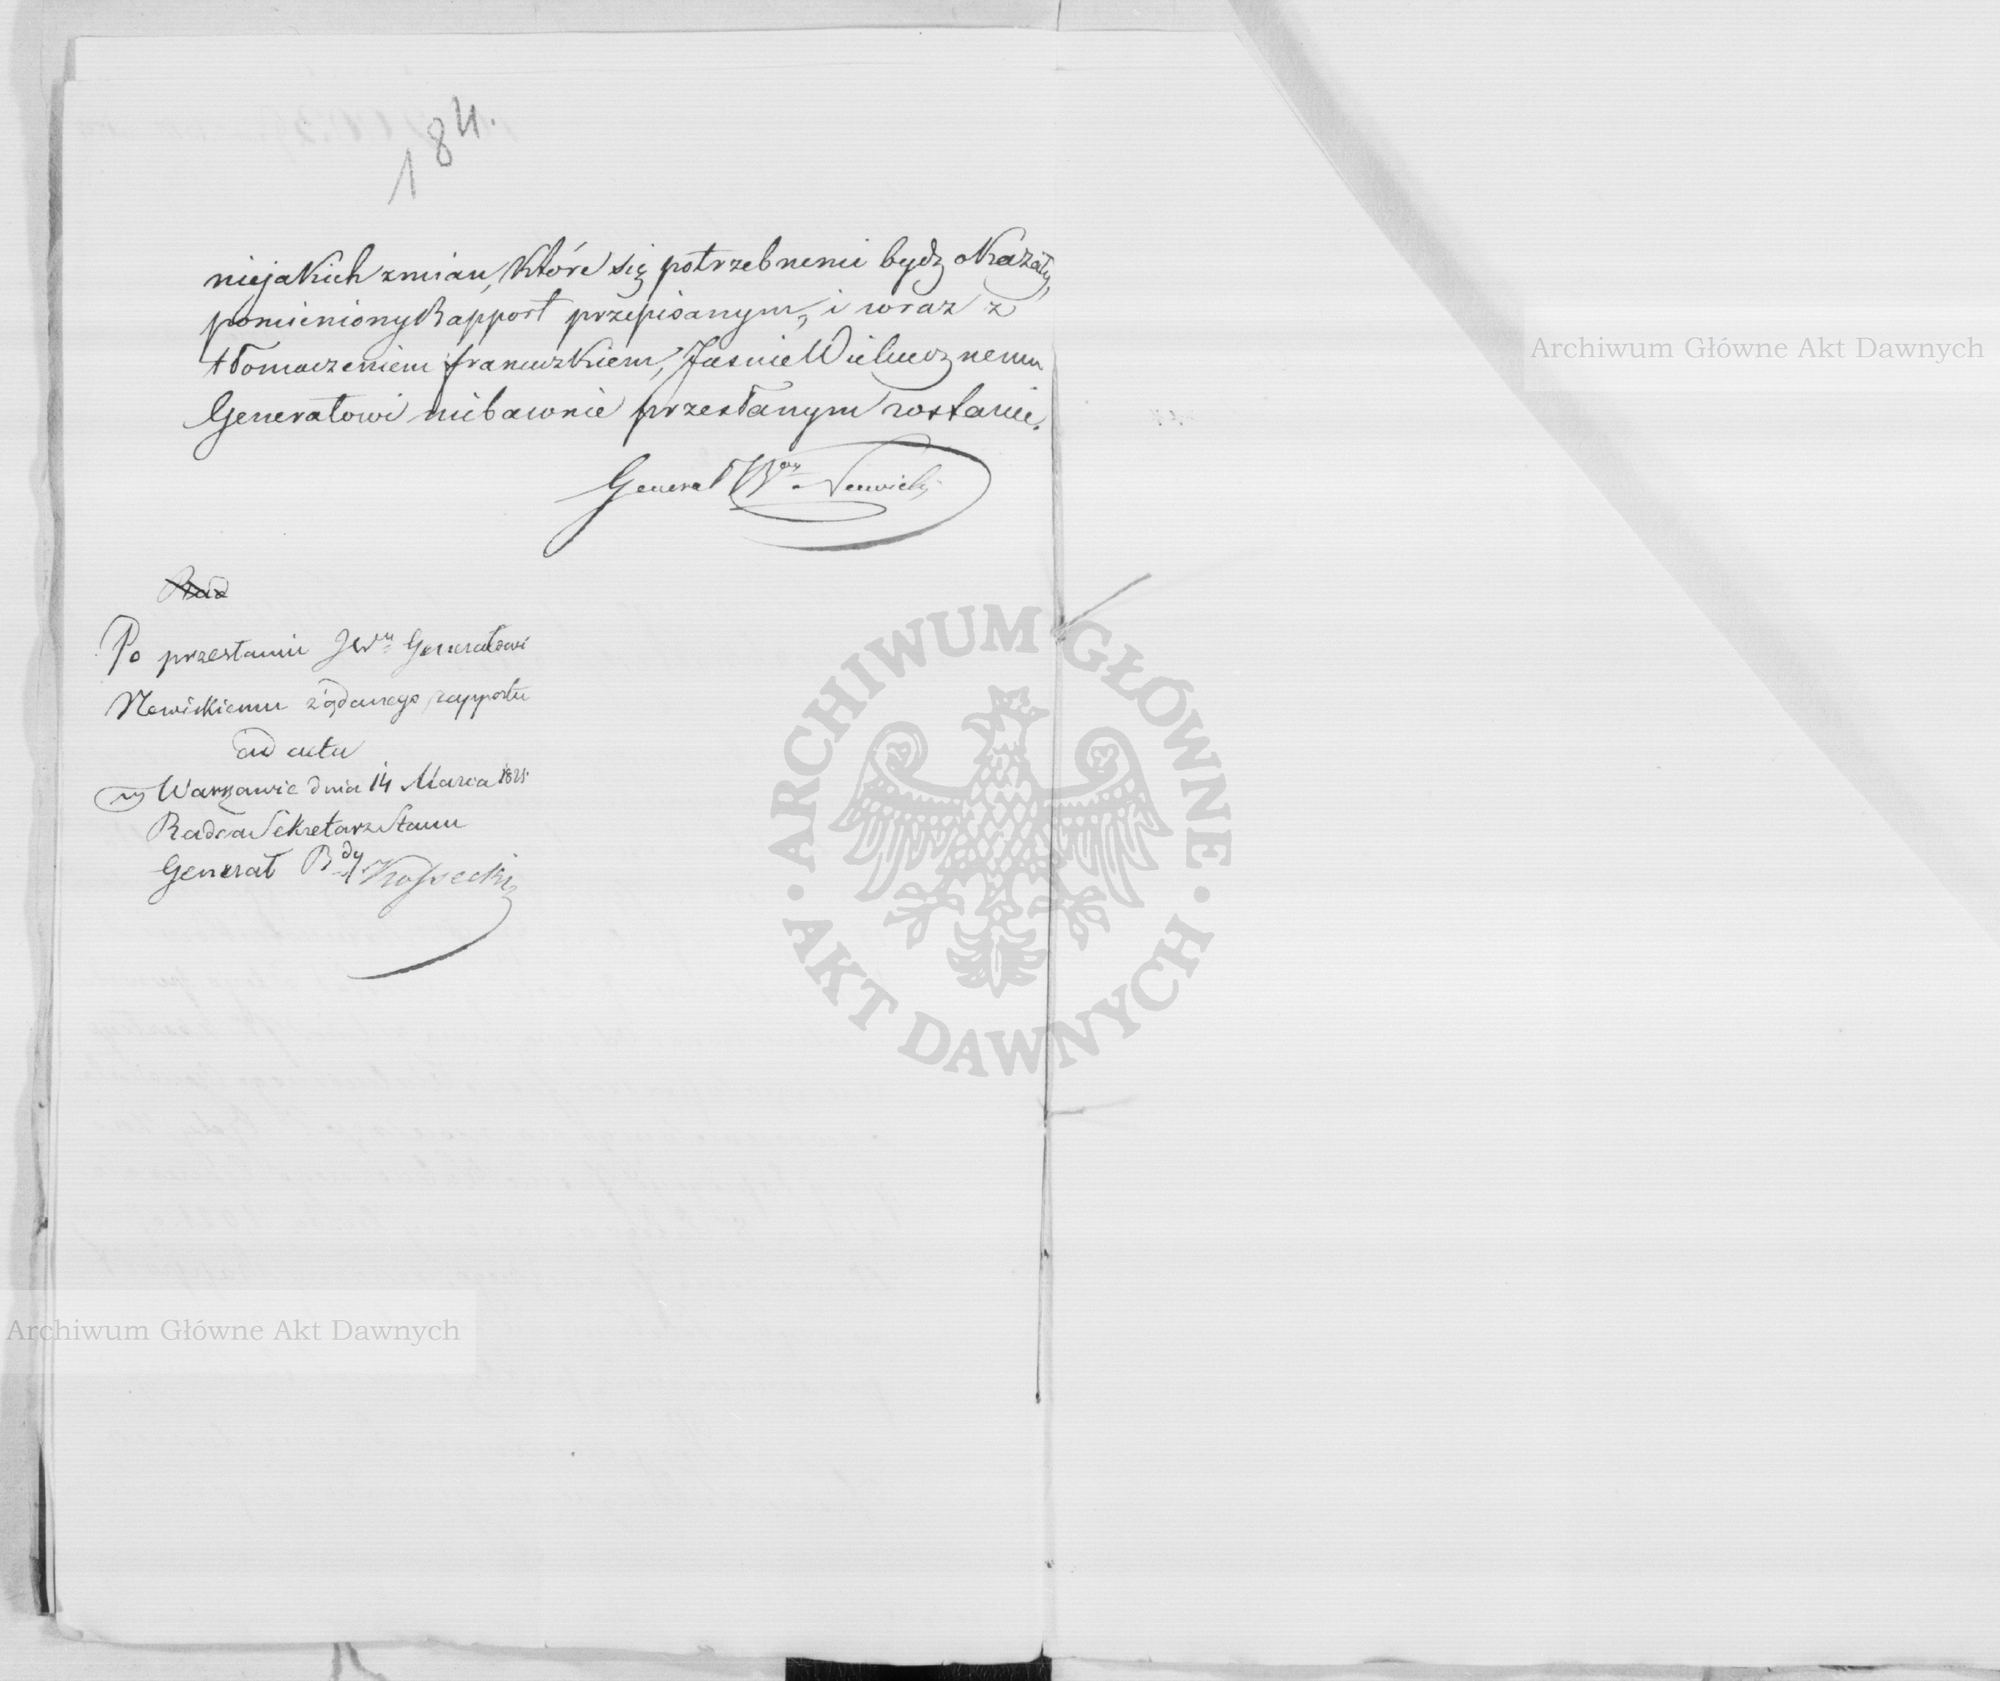 184.
niejakich zmian, które się potrzebnemi bydź okazały,
pomieniony Rapport przepisanym, i wraz z
tłomaczeniem francuzkiem, Jaśnie Wielmożnemu
Generałowi niebawnie przesłanym zostanie.
General Bry Nowicki
Rad
Po przesłaniu JWu Generałowi
Nowickiemu żądanego rapportu
ad acta
w Warszawie dnia 14 Marca 1821
Radca Sekretarz Stanu
Generał Bdy Kossecki
Archiwum Główne Akt Dawnych
ARCHIWUM GŁÓWNE
AKT DAWNYCH
Archiwum Główne Akt Dawnych